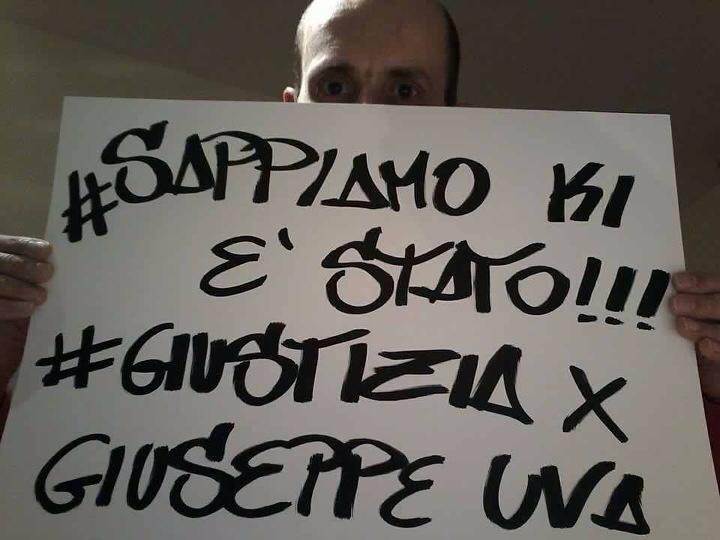 #SAPPIAMO KI
E' STATO!!!
#GIUSTIZIA X
GIUSEPPE UVA